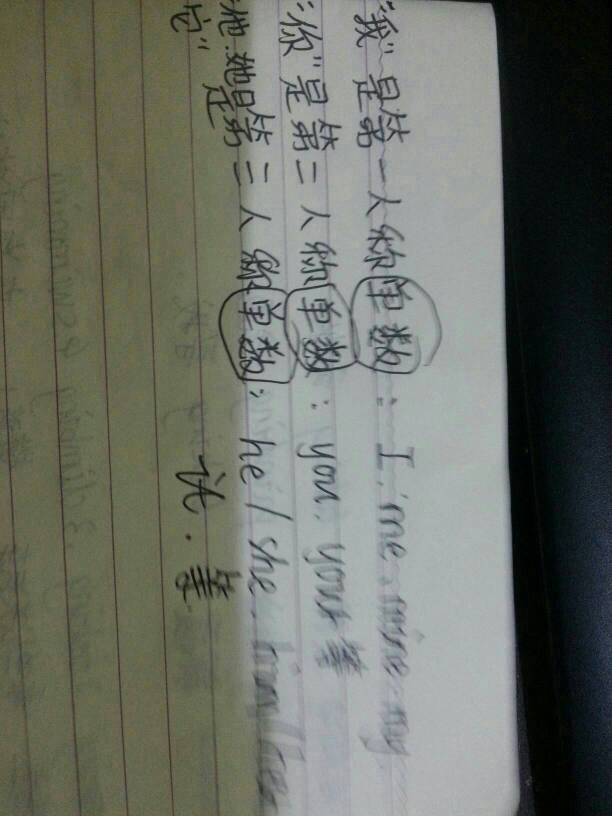 "我"是第一人称单数: I. me. mine my
"你"是第二人称单数: you. your 等
"他.她 它"是第三人称单数: he / she. him /
it. 等